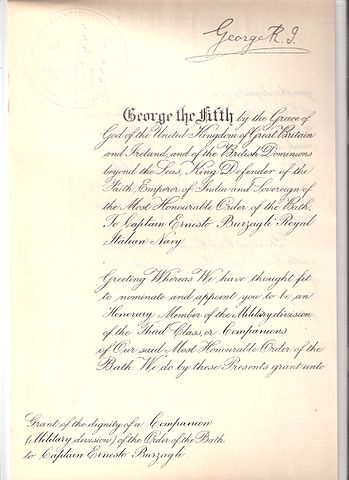 George R. I.
George the Fifth by the Grace of
God of the United Kingdom of Great Britain
and Ireland, and of the British Dominions
beyond the Seas, King Defender of the
Faith, Emperor of India and Sovereign of
the Most Honourable Order of the Bath,
To Captain Ernesto Burzagli Royal
Italian Navy
Greeting Whereas We have thought fit
to nominate and appoint you to be an
Honorary Member of the Military division
of the Third Class, or Companions
of Our said Most Honourable Order of the
Bath. We do by these Presents grant unto
Grant of the dignity of a Companion
(Military division) of the Order of the Bath
to Captain Ernesto Burzagli.